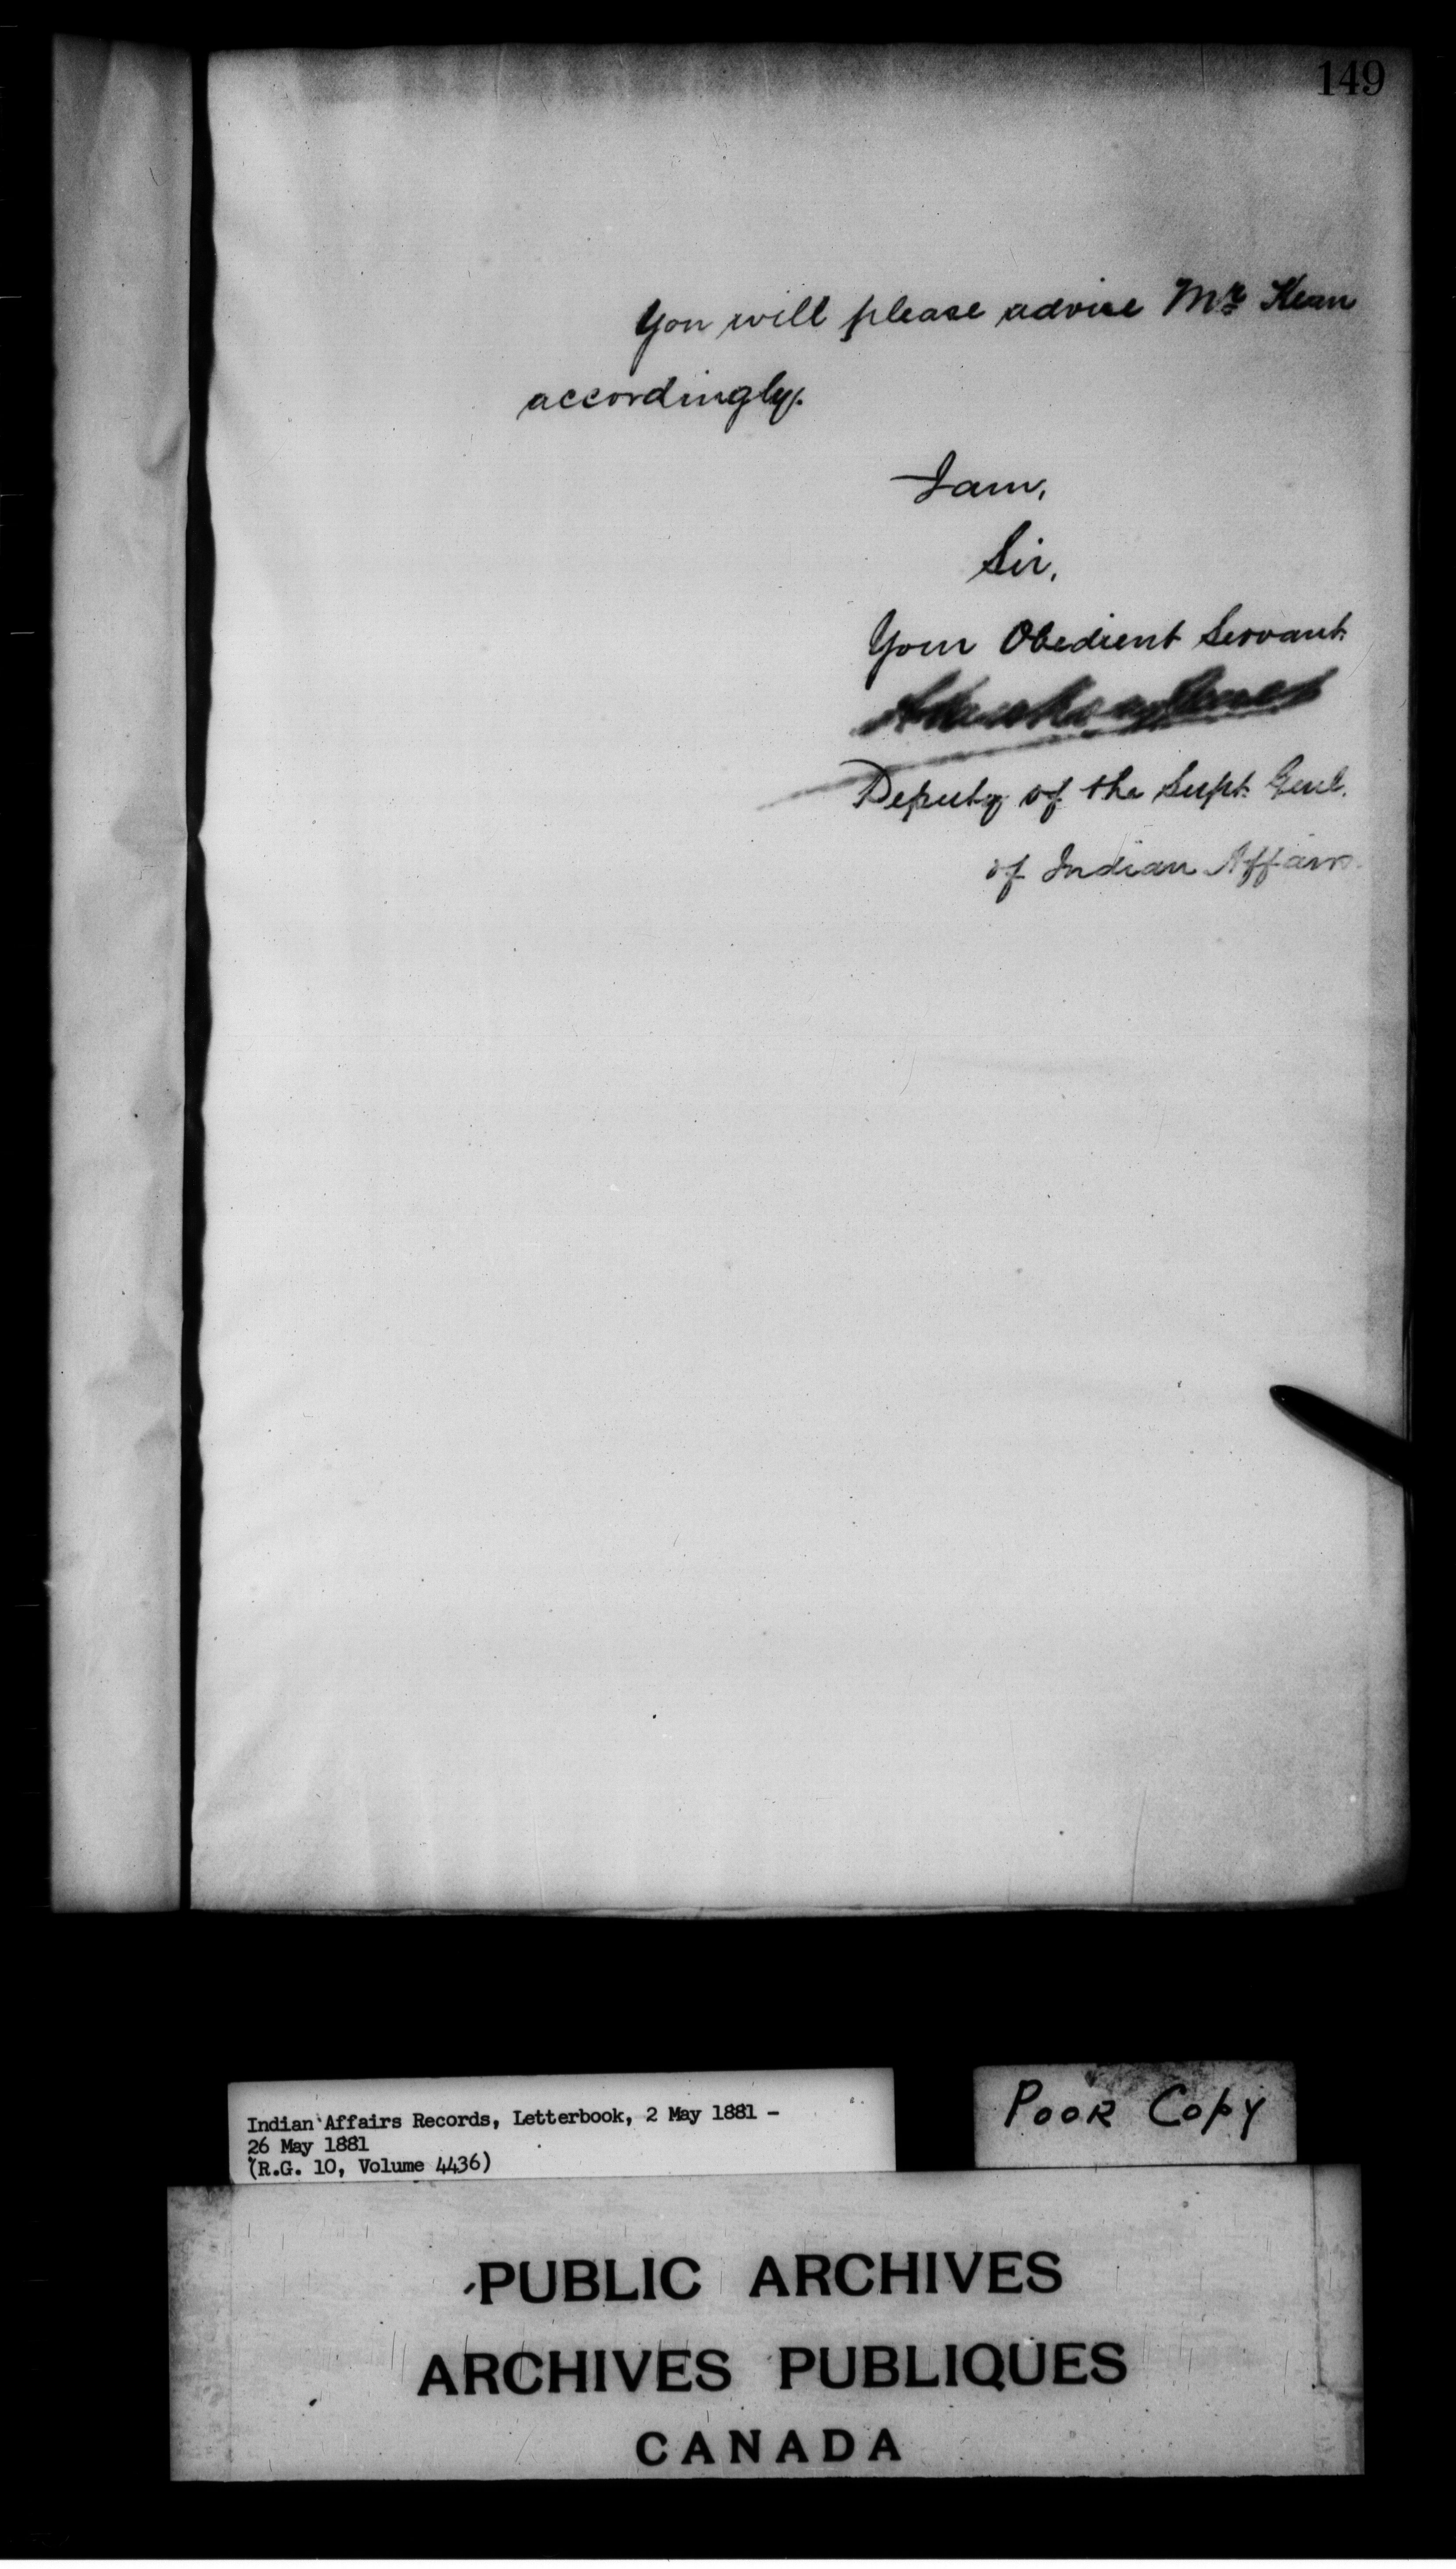 149
You will please advise Mr Kean
accordingly.
I am,
Sir,
Your Obedient Servant
Deputy of the Supt. Genl.
of Indian Affairs.
Indian Affairs Records, Letterbook, 2 May 1881 -
26 May 1881
(R.G. 10, Volume 4436)
POOR COPY
PUBLIC ARCHIVES
ARCHIVES PUBLIQUES
CANADA